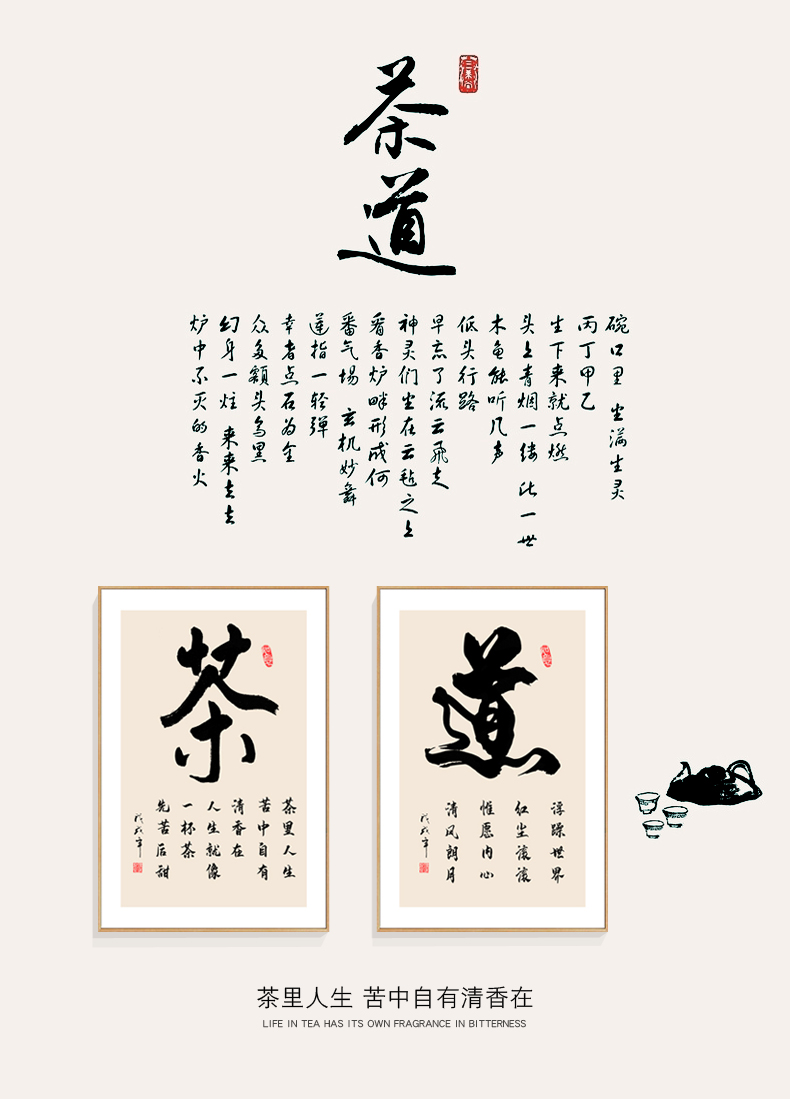 茶道
碗口里 坐满生灵
丙丁甲乙
生下来就点燃
头上青烟一缕 比一世
木鱼能听几声
低头行路
早忘了流云飛走
神灵们坐在云毡之上
看香炉畔形成何
番气場 玄机妙舞
莲指一轻弹
幸者点石为金
众多額头乌黑
幻身一炷 来来去去
炉中不灭的香火
茶
茶里人生
苦中自有
清香在
人生就像
一杯茶
先苦后甜
道
浮躁世界
红尘滚滚
惟愿内心
清风朗月
茶里人生 苦中自有清香在
LIFE IN TEA HAS ITS OWN FRAGRANCE IN BITTERNESS